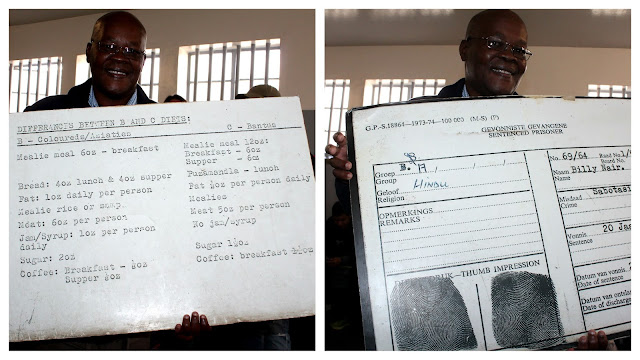 DIFFERANCES BETWEEN B AND C DIETS:
B - Coloureds/Asiatian
C - Bantus
Mealie meal 6oz - breakfast
Mealie meal 12oz:
Breakfast - 6oz
Supper - 6oz
Puzamandla - lunch
Bread: 4oz lunch & 4oz supper
Fat: 1oz daily per person
Mealie rice or samp.
Meat: 6oz per person
Jam/Syrup: 1oz per person
daily
Sugar: 2oz
Coffee: Breakfast -
Supper
Fat ½oz per person daily
Mealies
Meat 5oz per person
No jam/syrup
Sugar 1½oz
Coffee: breakfast
G.P.-S.18864-1973-74-100 000 (M-S) (P)
GEVONNISTE GEVANGENE
SENTENCED PRISONER
Groep
Group
Geloof
Religion
HINDU
OPMERKINGS
REMARKS
THUMB IMPRESSION
No. 69/64
Naam
Name
Billy Nair.
Misdaad
Crime
Sabotasi
Vonnis
Sentence
20 Jaa
Datum van vonnis
Date of sentence
Datum van ontslag
Date of discharge